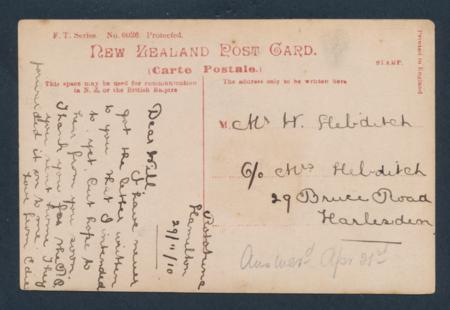 F. T. Series. No. 6026. Protected.
NEW ZEALAND POST CARD.
(Carte Postale.)
STAMP.
Printed in England
This space may be used for communication
in N. Z. or the British Empire
The address only to be written here
Rototuna
Hamilton
29/11/10
Dear Will
I have never
got the letter written
to you that I intended
to, yet, but hope to
hear from you soon.
Thank you for the P.C.
you sent home They
forwarded it on to me.
Love from Edie
M. Mr W. Hebditch
C/o Mrs Hebditch
29 Bruce Road
Harlesden
Answerd Apr 21st